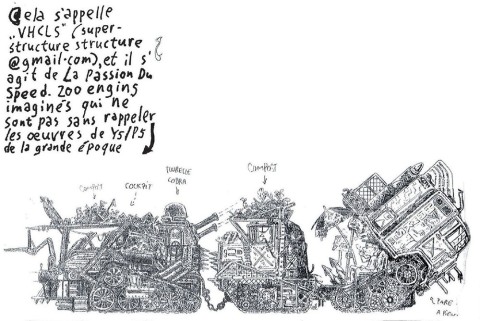 Cela s'appelle
„VHCLS" (super-
structure structure
@gmail.com), et il s'
agit de La Passion Du
Speed. 200 engins
imaginés qui ne
sont pas sans rappeler
les œuvres de Y5/P5
de la grande époque
COMPOST
COCKPIT
TOURELLE
COBRA
COMPOST